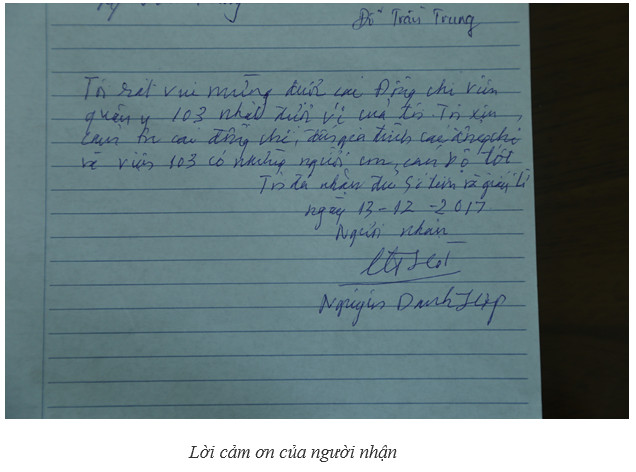 Đỗ Trần Trung
Tôi rất vui mừng được các Đồng chí viện
quân y 103 nhặt được ví của tôi. Tôi xin
cảm ơn các đồng chí, gia đình các đồng chí
và viện 103 có những người con, cán bộ tốt
Tôi đã nhận đủ số tiền và giấy tờ
ngày 13-12-2017
Người nhận
Nguyễn Danh
Lời cảm ơn của người nhận